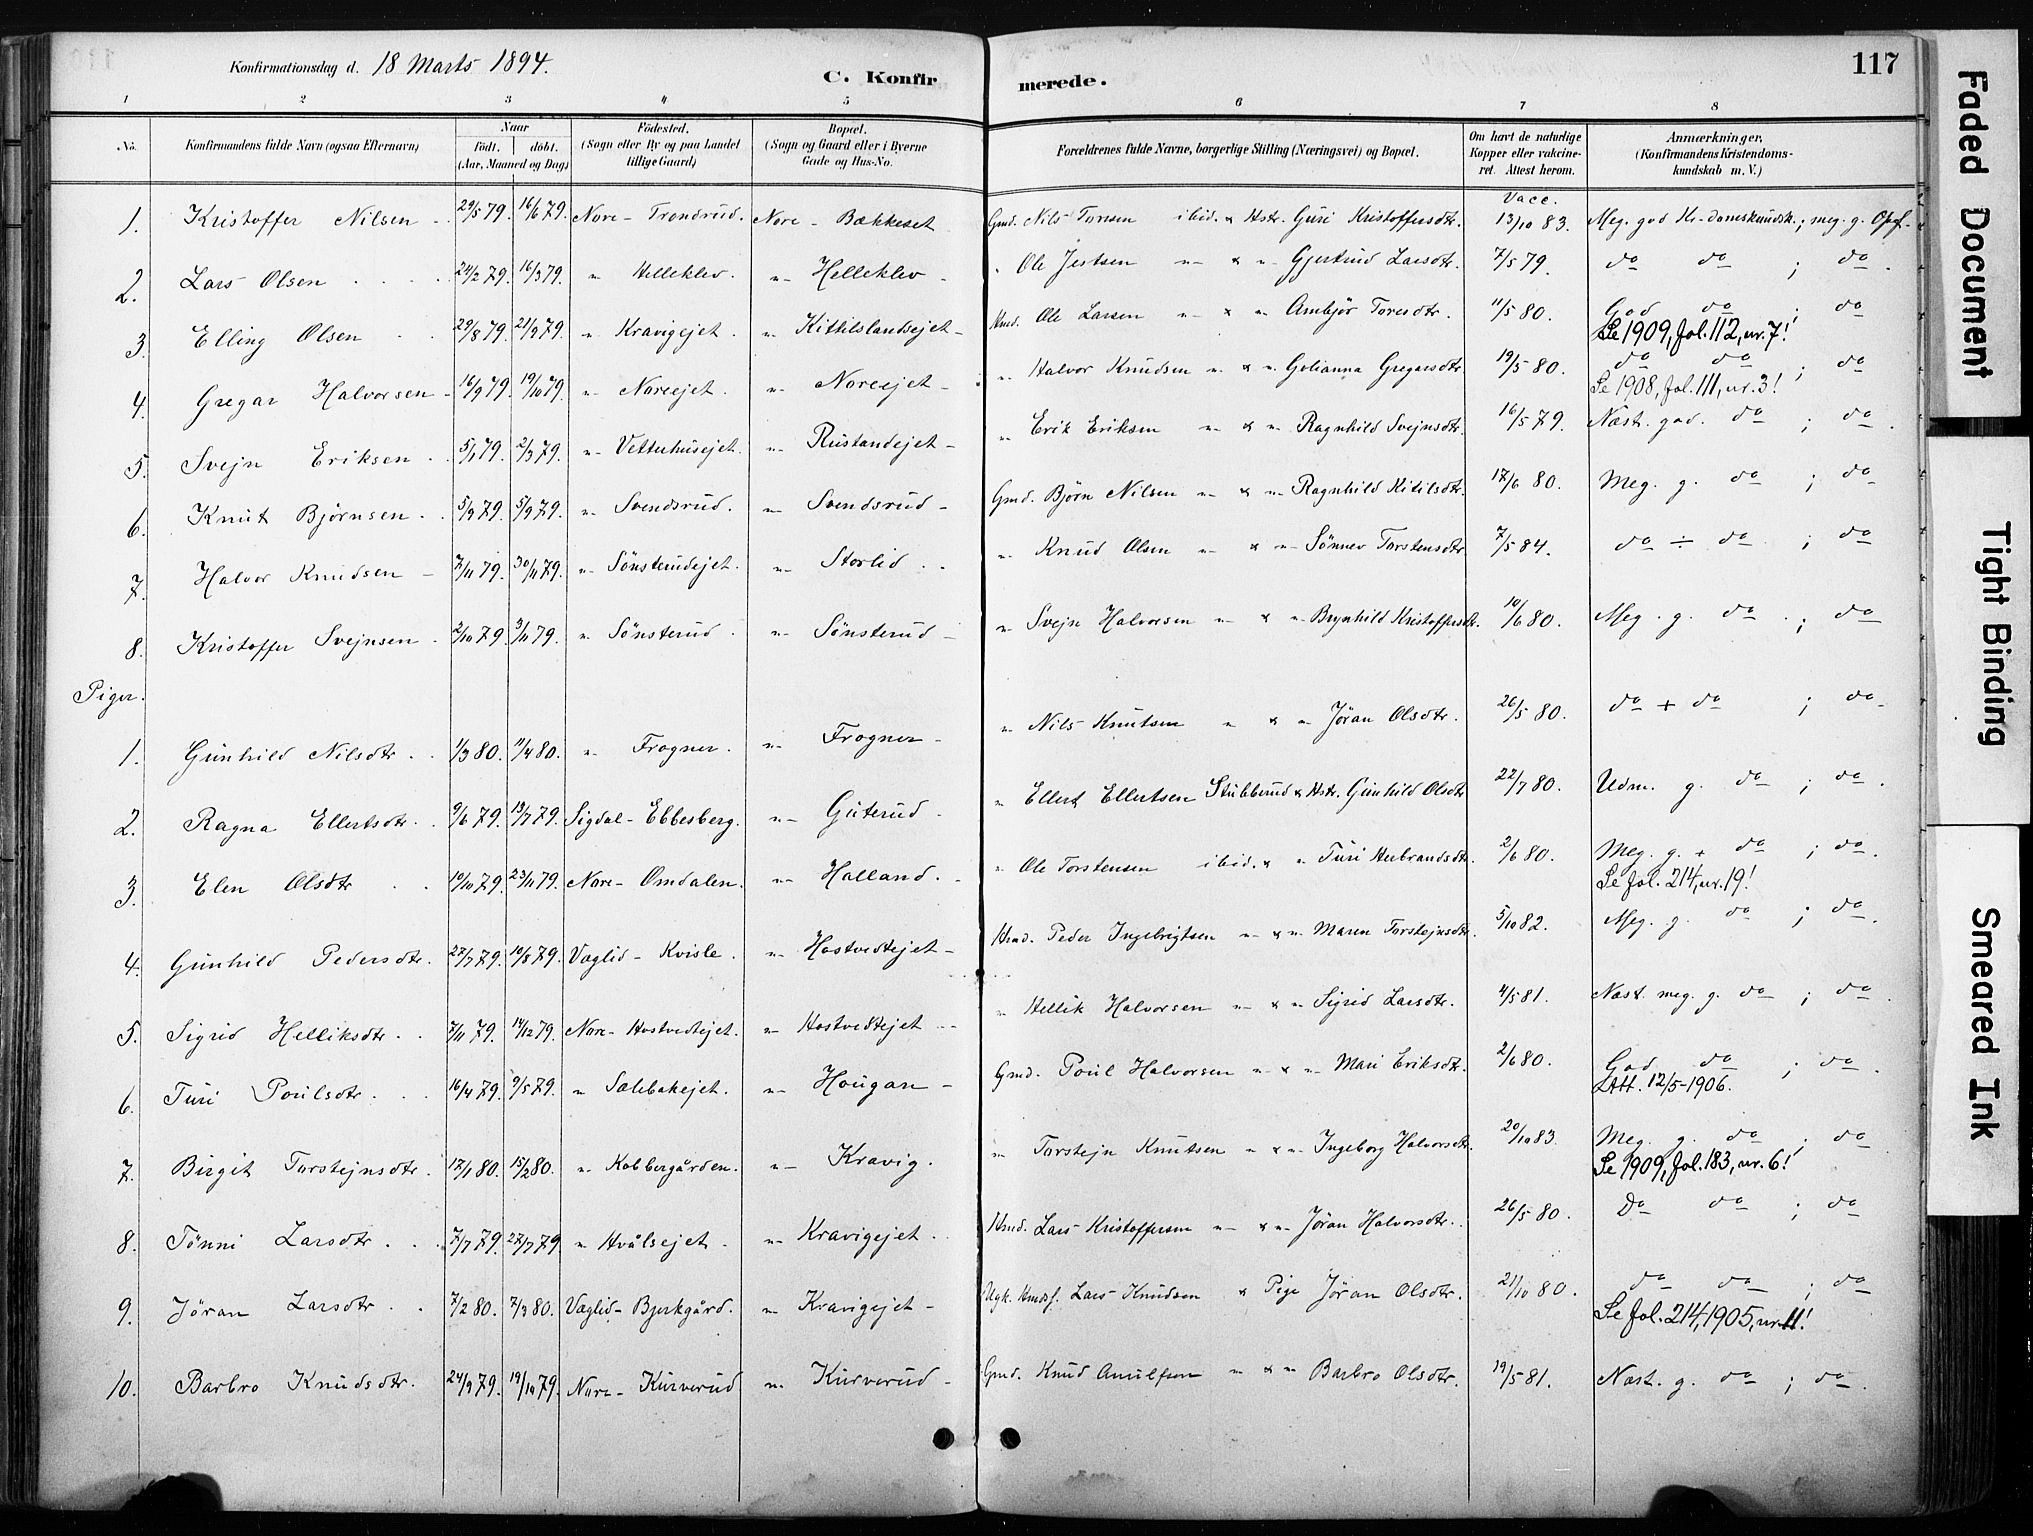 Konfirmationsdag d. 18 Marts 1894.
C. Konfirmerede.
117
1 2 3 4 5 6 7 8
No. Konfirmandens fulde Navn (ogsaa Efternavn) Naar födt. döbt. (Aar, Maaned og Dag) Födested. (Sogn eller By og paa Landet tillige Gaard) Bopæl. (Sogn og Gaard eller i Byerne Gade og Hus-No. Forældrenes fulde Navne, borgerlige Stilling (Næringsvei) og Bopæl. Om havt de naturlige Kopper eller vakcineret. Attest herom. Anmærkninger, (Konfirmandens Kristendomskundskab m. V.)
Vacc.
1. Kristoffer Nilsen 29/5 79. 16/6 79. Nore - Trondrud. Nore - Bækkeset Gmd. Nils Toresen ibid. & Hstr. Guri Kristoffersdtr. 13/10 83. Meg. god Kr-domskundsk.; meg. g. Opf.
2. Lars Olsen 24/2 79. 16/3 79. " Helleklev. " Helleklev " Ole Jertsen " & " Gjertrud Larsdtr. 7/5 79. do do ; do.
3. Elling Olsen 29/8 79. 21/9 79. " Kravigejet. " Kittilslandsejet Hmd. Ole Larsen " & " Ambjør Toresdtr. 11/5 80. God do ; do
Se 1909, fol. 112, nr. 7!
4. Gregar Halvorsen 16/9 79. 19/10 79. " Noreejet. " Noreejet " Halvor Knudsen " & " Golianna Gregarsdtr. 19/5 80. do do ; do
Se 1908, fol. 111, nr. 3!
5. Svejn Eriksen 5/1 79. 2/3 79. " Vetterhusejet. " Rustandejet " Erik Eriksen " & " Ragnhild Svejnsdtr. 16/5 79. Næst. god. do ; do.
6. Knut Bjørnsen 5/9 79. 5/9 79. " Svendsrud. " Svendsrud Gmd. Björn Nilsen " & " Ragnhild Kitilsdtr. 17/6 80. Meg. g. do ; do
7. Halvor Knudsen 7/11 79. 30/11 79. " Sönsterudejet. " Storlid " Knud Olsen " & " Sönnev Torstensdtr 7/5 84. do ÷ do ; do
8. Kristoffer Svejnsen 2/10 79. 3/11 79. " Sönsterud. " Sönsterud " Svejn Halvorsen " & " Brynhild Kristoffersdt. 10/6 80. Meg. g. do ; do
Piger.
1. Gunhild Nilsdtr. 1/3 80. 11/4 80. " Frogner. " Frogner " Nils Knutsen " & " Jöran Olsdtr. 26/5 80. do + do ; do
2. Ragna Ellertsdtr. 9/6 79. 13/7 79. Sigdal - Ebbesberg. " Guterud " Ellert Ellertsen Stubberud & Hstr. Gunhild Olsdtr 22/7 80. Udm. g. do ; do.
3. Elen Olsdtr 10/10 79. 23/11 79. Nore - Omdalen. " Halland. " Ole Torstensen ibid. & " Turi Herbrandsdtr. 2/6 80. Meg. g. + do ; do.
Se fol. 214, nr. 19!
4. Gunhild Pedersdtr. 27/7 79. 10/8 79. Væglid - Kvisle. " Hostvedtejet Hmd. Peder Ingebrigtsen " & " Maren Torstejnsdtr. 5/10 82. Meg. g. do ; do.
5. Sigrid Helliksdtr. 7/11 79. 14/12 79. Nore - Hostvedtejet. " Hostvedtejet " Hellik Halvorsen " & " Sigrid Larsdtr. 4/5 81. Næst. meg. g. do ; do.
6. Turi Poulsdtr. 16/4 79. 9/5 79. " Salebakejet. " Hougan Gmd. Poul Halvorsen " & " Mari Eriksdtr. 2/6 80. God do ; do.
Att. 12/5-1906.
7. Birgit Torstejnsdtr. 17/1 80. 15/2 80. " Kobbergården. " Kravig. " Torstejn Knutsen " & " Ingeborg Halvorsdtr. 20/10 83. Meg. g. do ; do
Se 1909, fol. 183, nr. 6!
8. Tönni Larsdtr. 7/7 79. 27/7 79. " Hvålsejet. " Kravigejet. Hmd. Lars Kristoffersen " & " Jöran Halvorsdtr. 26/5 80. Do do ; do
9. Jöran Larsdtr. 7/2 80. 7/3 80. Væglid - Bjerkgård. " Kravigejet Ugk. Hmdsf. Lars Knudsen & Pige Jöran Olsdtr. 21/10 80. do do ; do
Se fol. 214, 1905, nr. 11!
10. Barbro Knudsdtr. 24/9 79. 19/10 79. Nore - Kurverud " Kurverud Gmd. Knud Arnulfsen " & " Barbro Olsdtr. 19/5 81. Næst. g. do ; do.
Faded Document
Tight Binding
Smeared Ink